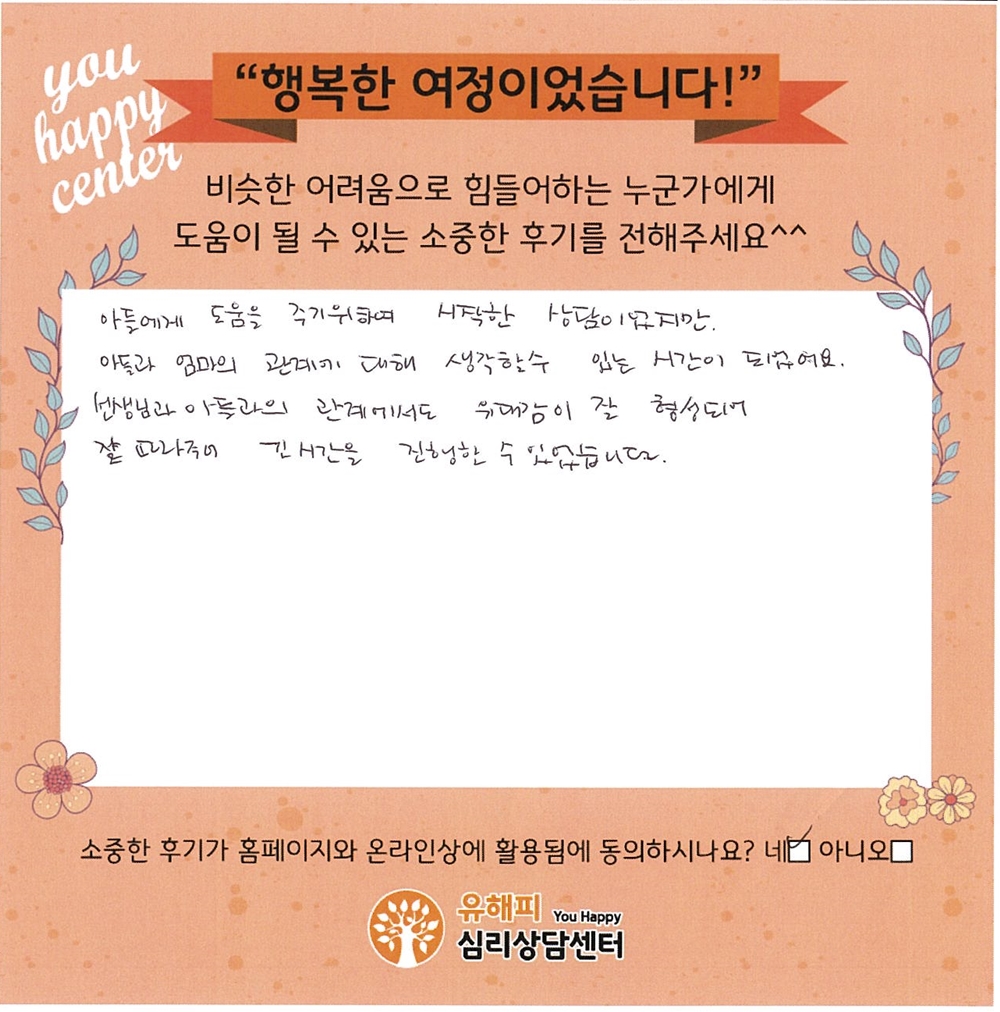 you
happy
center
“행복한 여정이었습니다!”
비슷한 어려움으로 힘들어하는 누군가에게
도움이 될 수 있는 소중한 후기를 전해주세요^^
아들에게 도움을 주기위하여 시작한 상담이었지만.
아들과 엄마의 관계에 대해 생각할수 있는 시간이 되었어요.
선생님과 아들과의 관계에서도 유대감이 잘 형성되어
잘 따라주어 긴 시간을 진행할 수 있었습니다.
소중한 후기가 홈페이지와 온라인상에 활용됨에 동의하시나요? 네 아니오
유해피 You Happy
심리상담센터